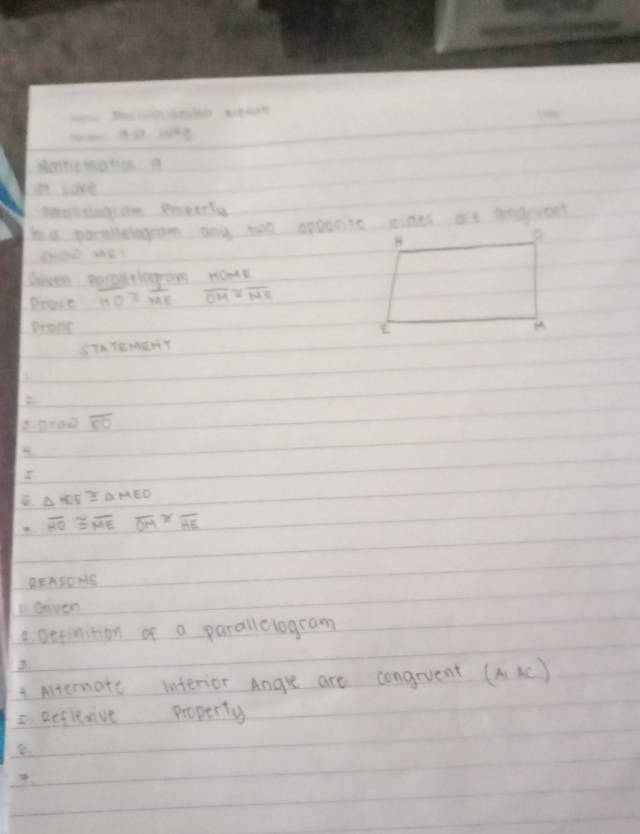 Mathematics 9
Love
Parallelogram Property
In a parallelogram any two opposite sides are congruent
SHOW ME!
Given parallelogram HOME
Prove HO ≅ ME OM ≅ ME
Proof
H O
E M
STATEMENT
1.
2.
3. Draw EO
4.
5.
6. △ HOE ≅ △ MEO
7. HO ≅ ME OM ≅ HE
REASONS
1. Given
2. Definition of a parallelogram
3.
4. Alternate Interior Angle are congruent (AIAC)
5. Reflexive Property
6.
7.